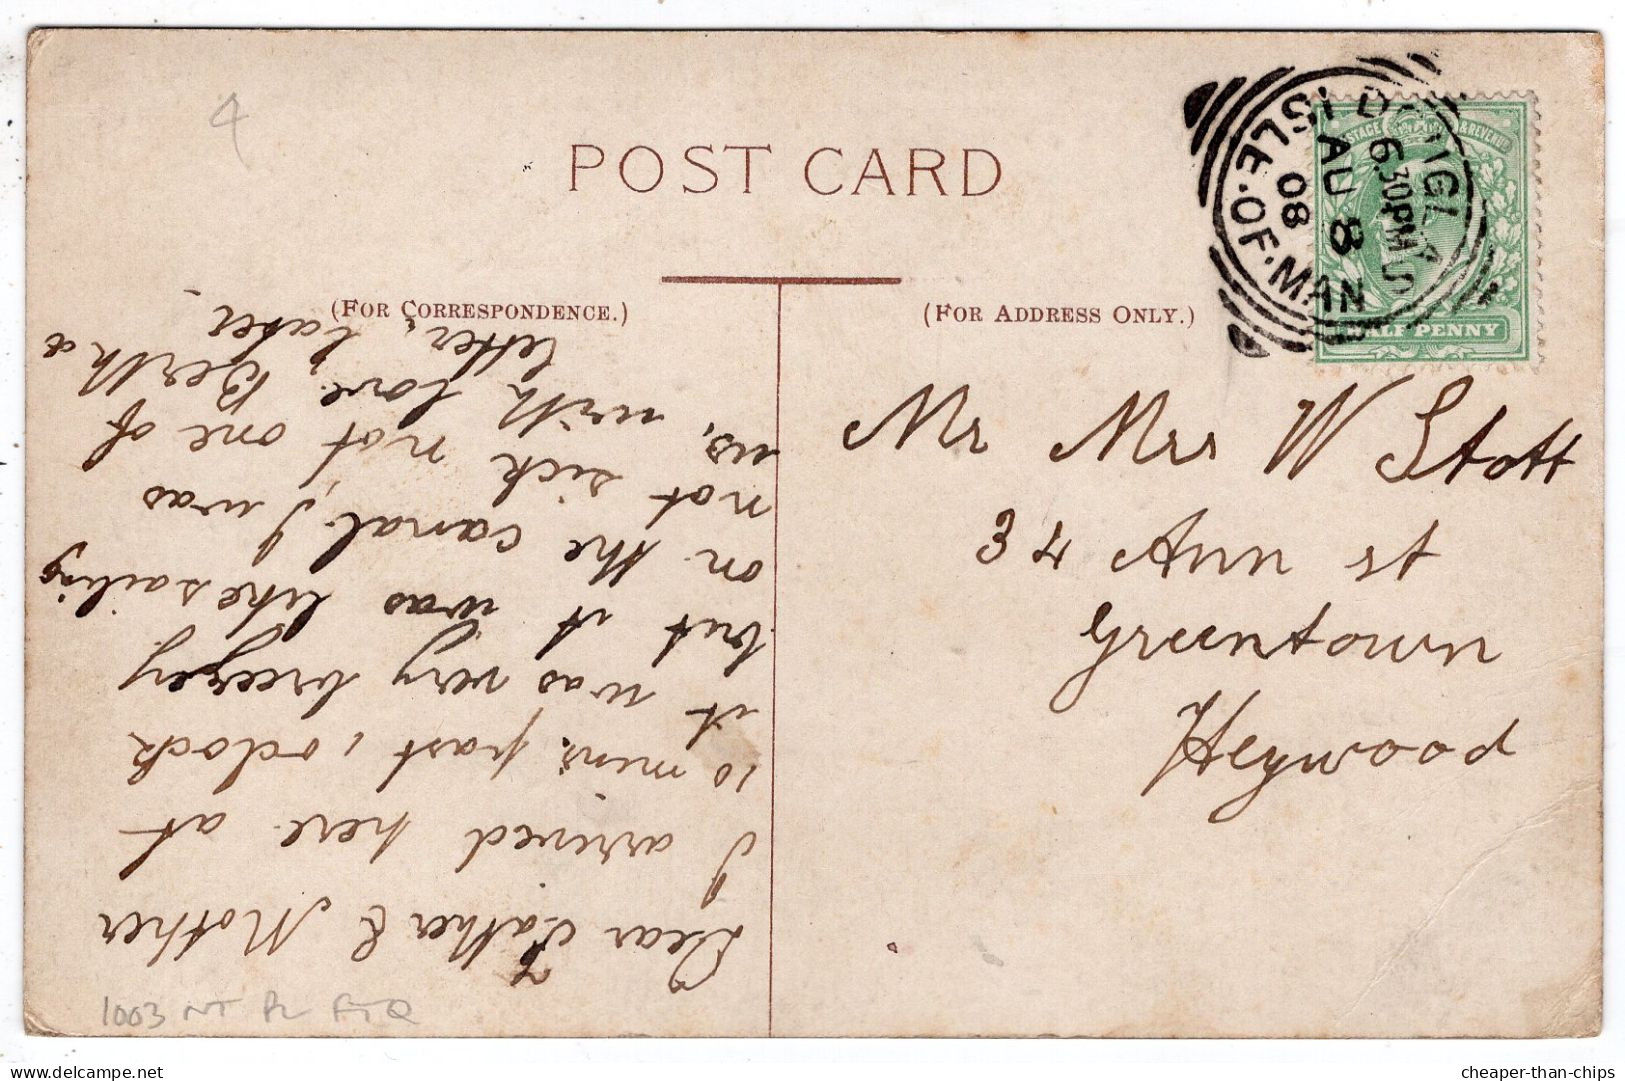 4
POST CARD
(FOR CORRESPONDENCE.)
(FOR ADDRESS ONLY.)
DOUGLAS
6.30PM
AU 8
08
ISLE.OF.MAN
POSTAGE & REVENUE
HALF PENNY
Mr Mrs W Stott
34 Ann st
Greentown
Heywood
Dear Father & Mother
I arrived here at
10 mins past 1 oclock
it was very breezey
but it was like sailing
on the canal. I was
not sick, not one of
us. with love Bertha
letter, later.
1003 NT
cheaper-than-chips